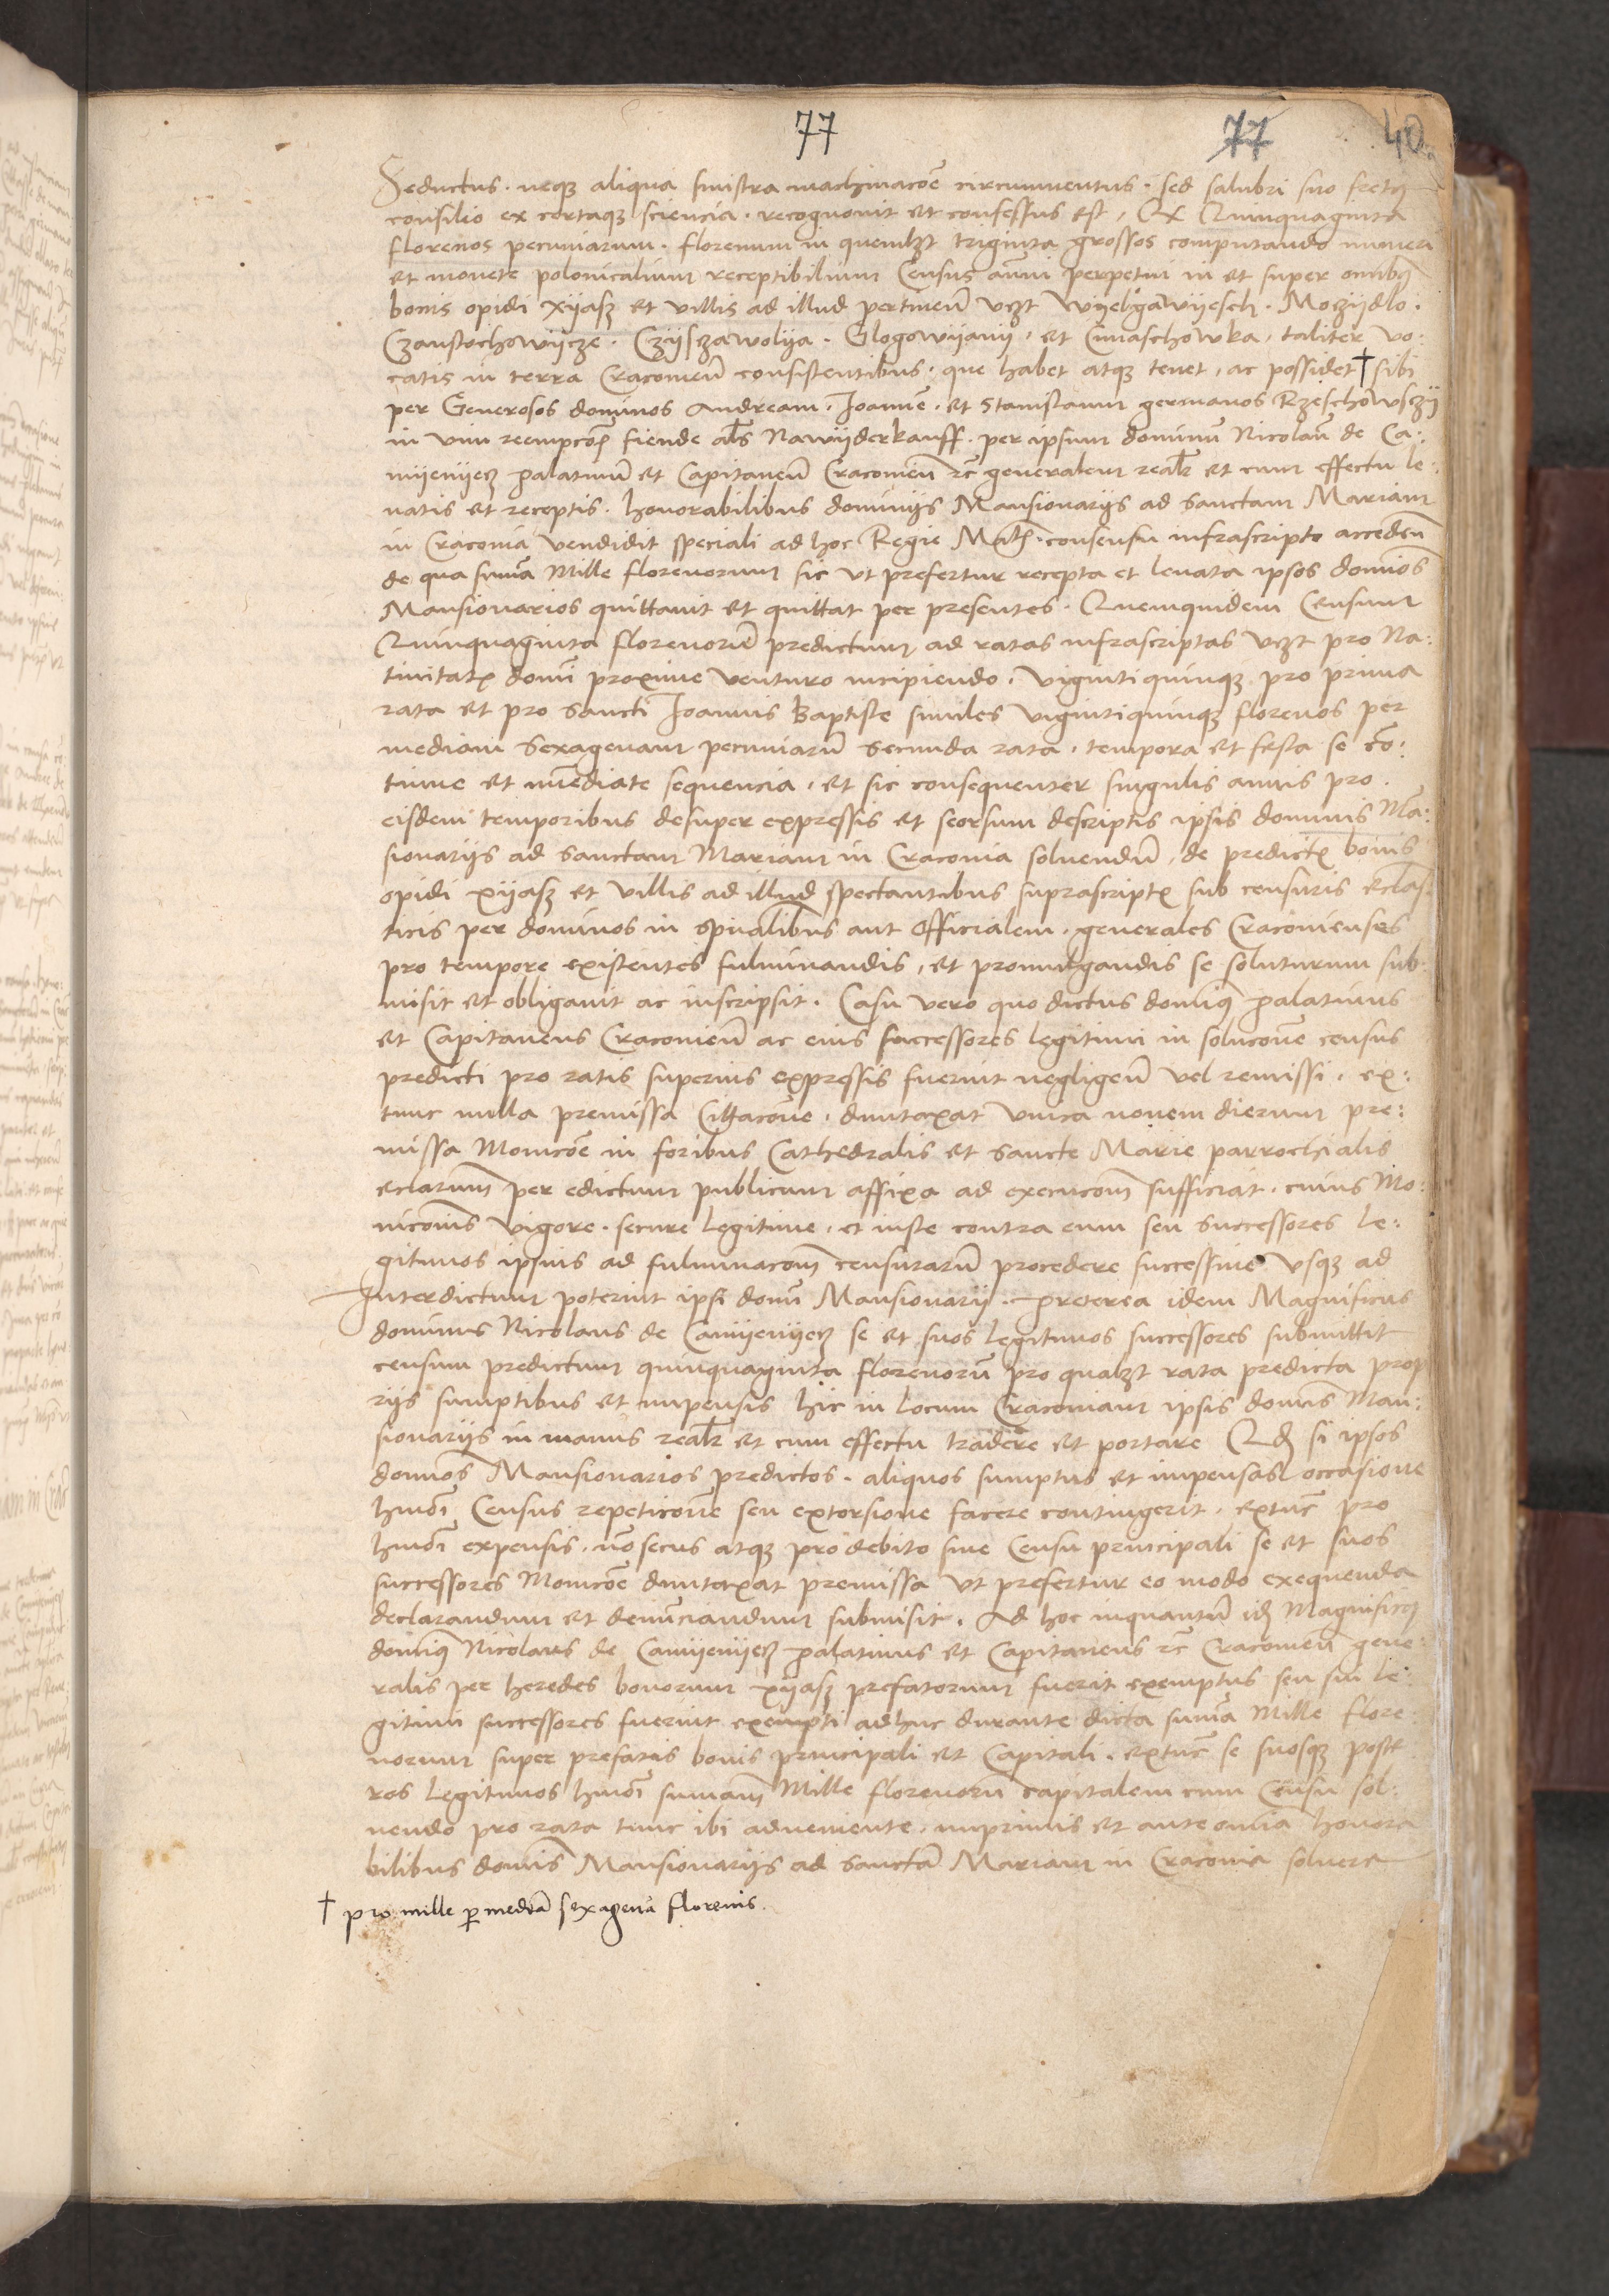 77 77 40
Seductus. neqꝫ aliqua sinistra machinacōe circumuentus. sed salubri suo fretꝰ
consilio ex certaqꝫ sciencia. recognouit et confessus est, Qꝛ Quinquaginta
florenos pecuniarum. florenum in quemlꝫt triginta grossos computando numeri
et monete polonicalium receptibilium Census annui perpetui in et super omnibꝫ
bonis opidi Xyasz et villis ad illud pertineñ vꝫt Wyelgawyesch. Moczydlo.
Czanstochowycze. Czyschawolya. Glogowyany, et Cunaschowka, taliter vo:
catis in terra Cracouieñ consistentibus. que habet atqꝫ tenet, ac possidet † sibi
per Generosos dominos Andream. Joannē. et Stanislaum germanos Rzeschowsczy
in vim reempcōis fiende als Nawyderkauff. per ipsum dominū Nicolaū de Ca:
myenyecz palatinū et Capitaneū Cracouieñ ꝛc generalem realr et cum effectu le:
uatis et receptis. honorabilibus dominijs Mansionarijs ad sanctam Mariam
in Cracouia vendidit speciali ad hoc Regie Mtis. consensu infrascripto accedeñ
de qua sum̄a Mille florenorum sic vt prefertur recepta et leuata ipsos dominos
Mansionarios quittauit et quittat per presentes. Quemquidem Censum
Quinquaginta florenorū predictum ad ratas infrascriptas vꝫt pro Na:
tiuitate domī proxime venturo incipiendo. viginti quinqꝫ pro prima
rata et pro sancti Joannis Baptiste similes vigintiquinqꝫ florenos per
mediam sexagenam pecuniarū secunda rata. tempora et festa se cō:
tinue et imediate sequencia, et sic consequenter singulis annis pro.
eisdem temporibus desuper expressis et seorsum descriptis ipsis dominis Mā:
sionarijs ad sanctam Mariam in Cracouia soluendū, de predictis bonis
opidi Xyasz et villis ad illud spectantibus suprascriptis sub censuris ecclas:
ticis per dominos in spualibus aut Officialem. generales Cracouienses
pro tempore existentes fulminandis, et promulgandis se soluturum sub:
misit et obligauit ac inscripsit. Casu vero quo dictus dominꝰ palatinus
et Capitaneus Cracouieñ ac eius successores legitimi in solucoñe census
predicti pro ratis superius expressis fuerint negligeñ vel remissi, ex:
tunc nulla premissa Cittacōne, dumtaxat vnica nouem dierum pre:
missa Monicōe in foribus Cathedralis et sancte Marie parrochialis
eclarum per edictum publicum affixa ad execucoēm sufficiat. cuius Mo:
nicōnis vigore. secure legitime, et iuste contra eum seu successores le:
gitimos ipsius ad fulminacoēm censurarū procedere successiue vsqꝫ ad
Interdictum poterint ipsi domī Mansionarij. preterea idem Magnificus
dominus Nicolaus de Camyenyecz se et suos legitimos successores submittit
censum predictum quinquaginta florenorū pro qualꝫt rata predicta prop
rijs sumptibus et impensis hic in locum Cracouiam ipsis domīs Man:
sionarijs in manus realr et cum effectu tradere et portare Qd si ipsos
domīos Mansionarios predictos. aliquos sumptus et impensas occasione
hmōi Census repeticōne seu extorsione facere contingerit, extūc pro
hmōi expensis, nō secus atqꝫ pro debito siue Censu principali se et suos
successores Monicōe dumtaxat premissa vt prefertur eo modo exequenda
declarandum et denūciandum submisit. Ad hoc inquantū idē Magnificꝰ
dominꝰ Nicolaus de Camyenyecz palatinus et Capitaneus ꝛc Cracouieñ gene:
ralis per heredes bonorum Xyasz prefatorum fuerit exemptus seu sui le:
gitimi successores fuerint exempti adhuc durante dicta sum̄a Mille flore:
norum super prefatis bonis principali et Capitali. extūc se suosqꝫ poste
ros legitimos hmōi sum̄am Mille florenorū capitalem cum Censu sol:
uendo pro rata tunc ibi adueniente, imprimis et ante om̄ia honora
bilibus domīs Mansionarijs ad sanctā Mariam in Cracouia soluere
† pro mille per mediā sexagenā florenis.